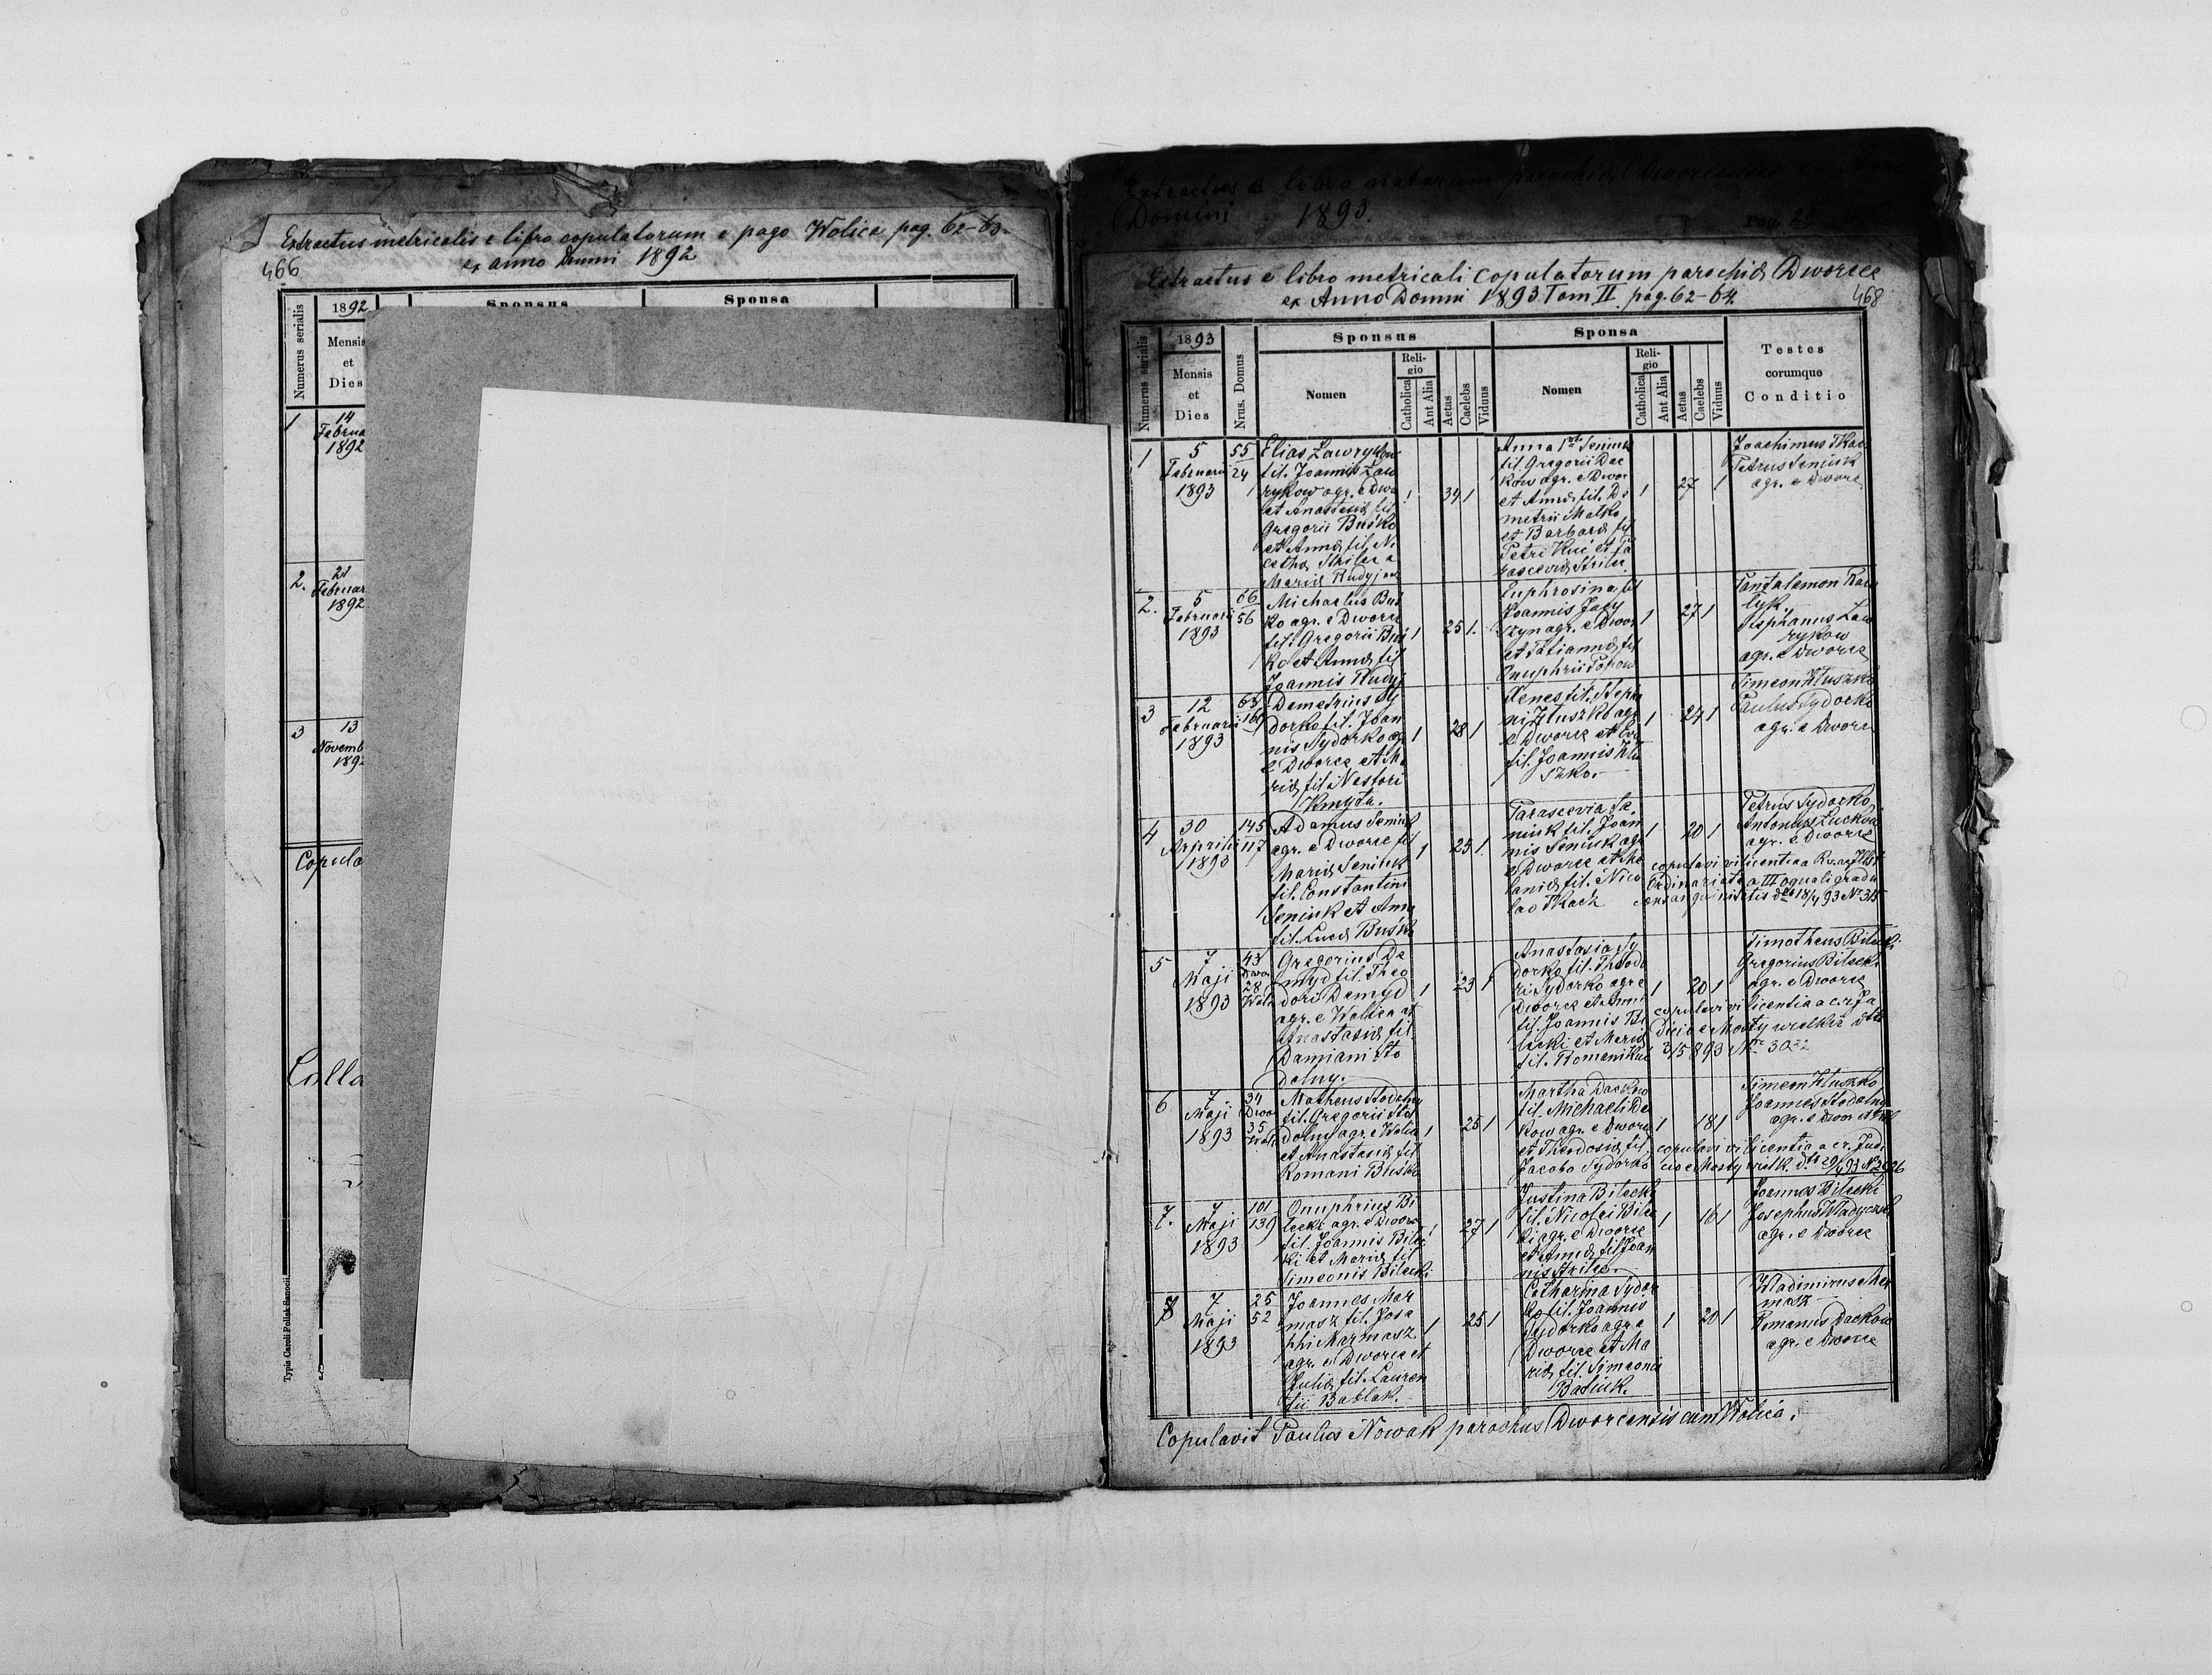 Extractus metricalis e libro copulatorum e pago Wolica pag. 62-63.
ex anno Domini 1892
466
Numerus serialis
1892
Mensis
et
Dies
Sponsus
Sponsa
1
14
Februa
1892
2.
21
Februar
1892
3
13
Novemb
189
Copula
Typis Caroli Pollak Sanocii
Extractus e libro natorum parochiæ Dworcensis ex Anno
Domini 1893.
pag. 29
Extractus e libro metricali copulatorum parochiæ Dworce
ex Anno Domini 1893 Tom II pag. 62-64
468
Numerus serialis
1893
Mensis
et
Dies
Nrus. Domus
Sponsus
Nomen
Reli-
gio
Catholica
Aut Alia
Aetas
Caelebs
Viduus
Sponsa
Nomen
Reli-
gio
Catholica
Aut Alia
Aetas
Caelebs
Viduus
Testes
eorumque
Conditio
1
5
Februarii
1893
55
24
Elias Lawrykow
fil. Joannis Law
rykow agr. e Dwo
et Anastasiæ fil
Gregorii Buśko
et Annæ fil. Ni
cetha Strilec a
Mariæ Rudyj
1
34 1
Anna Seniuk
fil. Gregorii Dac
kow agr. e Dwor
et Annæ fil. De
metrii Matko
et Barbaræ fil
Petri Kuć et Pa
rasceviæ Strilec
1
27
1
Joachimus Tkac
Petrus Seniuk
agr. e Dworce
2.
5
Februarii
1893
66
56
Michaelus Buś
ko agr. e Dworce
fil. Gregorii Buś
ko et Annæ fil
Joannis Rudyj
1
25 1.
Euphrosina fil
Joannis
agr. e Dwor
et Tatiannæ fil
Onuphrii Popow
1
27 1
Pantalemon
Stephanus Law
rykow
agr. e Dworce
3
12
Februarii
1893
63
160
Demetrius Sy
dorko fil. Joan
nis Sydorko agr
e Dworce et Ma
riæ fil. Nestori
Kmyta.
1
28 1
Xenes fil. Stepha
ni Hluszko agr
e Dworce et
fil. Joannis Hlu
szko.
1
24 1
Simeon Hluszko
Paulus Sydorko
agr. e Dworce
4
30
Arprilis
1893
145
117
Adamus Seniuk
agr. e Dworce fil
Mariæ Seniuk
fil. Constantini
Seniuk et Annæ
fil. Lucæ Buśko
1
25 1.
Parascevia Se
niuk fil. Joan
nis Seniuk agr
e Dworce et Me
laniæ fil. Nico
lao Tkach
1
20 1
Petrus Sydorko
Antonius
agr. e Dworce
copulavi vi licentiæ a
Ordinariato a III æquali gradu
consanguinitatis dto 18/4 93 No 315
5
7
Maji
1893
43
Dwor
28
Wol
Gregorius De
myd fil. Theo
dori Demyd
agr. e Wolica et
Anastasiæ fil
Damiani Sto
dolny.
1
23 1
Anastasia Sy
dorko fil. Theodo
ri Sydorko agr e
Dworce et Annæ
fil. Joannis Bi
lecki et Mariæ
fil. Romani Kuć
1
20 1
Timotheus Bilecki
Gregorius Bilecki
agr. e Dworce
copulavi vi licentiæ a c.r. Ju
dicio e Mosty wielkie dto
3/5 893 No 3032
6
7
Maji
1893
34
Dwor
35
Wol
Matheus Stodolny
fil. Gregorii Sto
dolny agr. e Wolica
et Anastasiæ fil
Romani Buśko
1
25 1
Martha Dackow
fil. Michaeli Da
kow agr. e Dworce
et Theodosiæ fil
Jacobo Sydorko
1
18 1
Simeon Hluszko
Joannes Stodolny
agr. e Dwor et Wol
copulavi vi licentiæ a c.r. Judi
cio e Mosty wielk. dto 29/4 93 No 2926
7.
7
Maji
1893
101
139
Onuphrius Bi
lecki agr. e Dworce
fil. Joannis Bilec
ki et Mariæ fil
Simeonis Bilecki
1
27 1
Justina Bilecki
fil. Nicolai Bilec
ki agr. e Dworce
et Annæ fil Joan
nis Strilec.
1
16 1
Joannes Bilecki
Josephus Wladyczak
agr. e Dworce
8
7
Maji
1893
25
52
Joannes Mar
masz fil. Jose
phi Marmasz
agr. e Dworce et
Juliæ fil. Lauren
tii Bablak.
1
25 1
Catharina Sydor
ko fil. Joannis
Sydorko agr e
Dworce et Ma
riæ fil. Simeonis
Batiuk.
1
20 1
Wladimirus Mar
masz
Romanus Dackow
agr. e Dworce
Copulavit Paulus Nowak parochus Dworcensis cum Wolica.